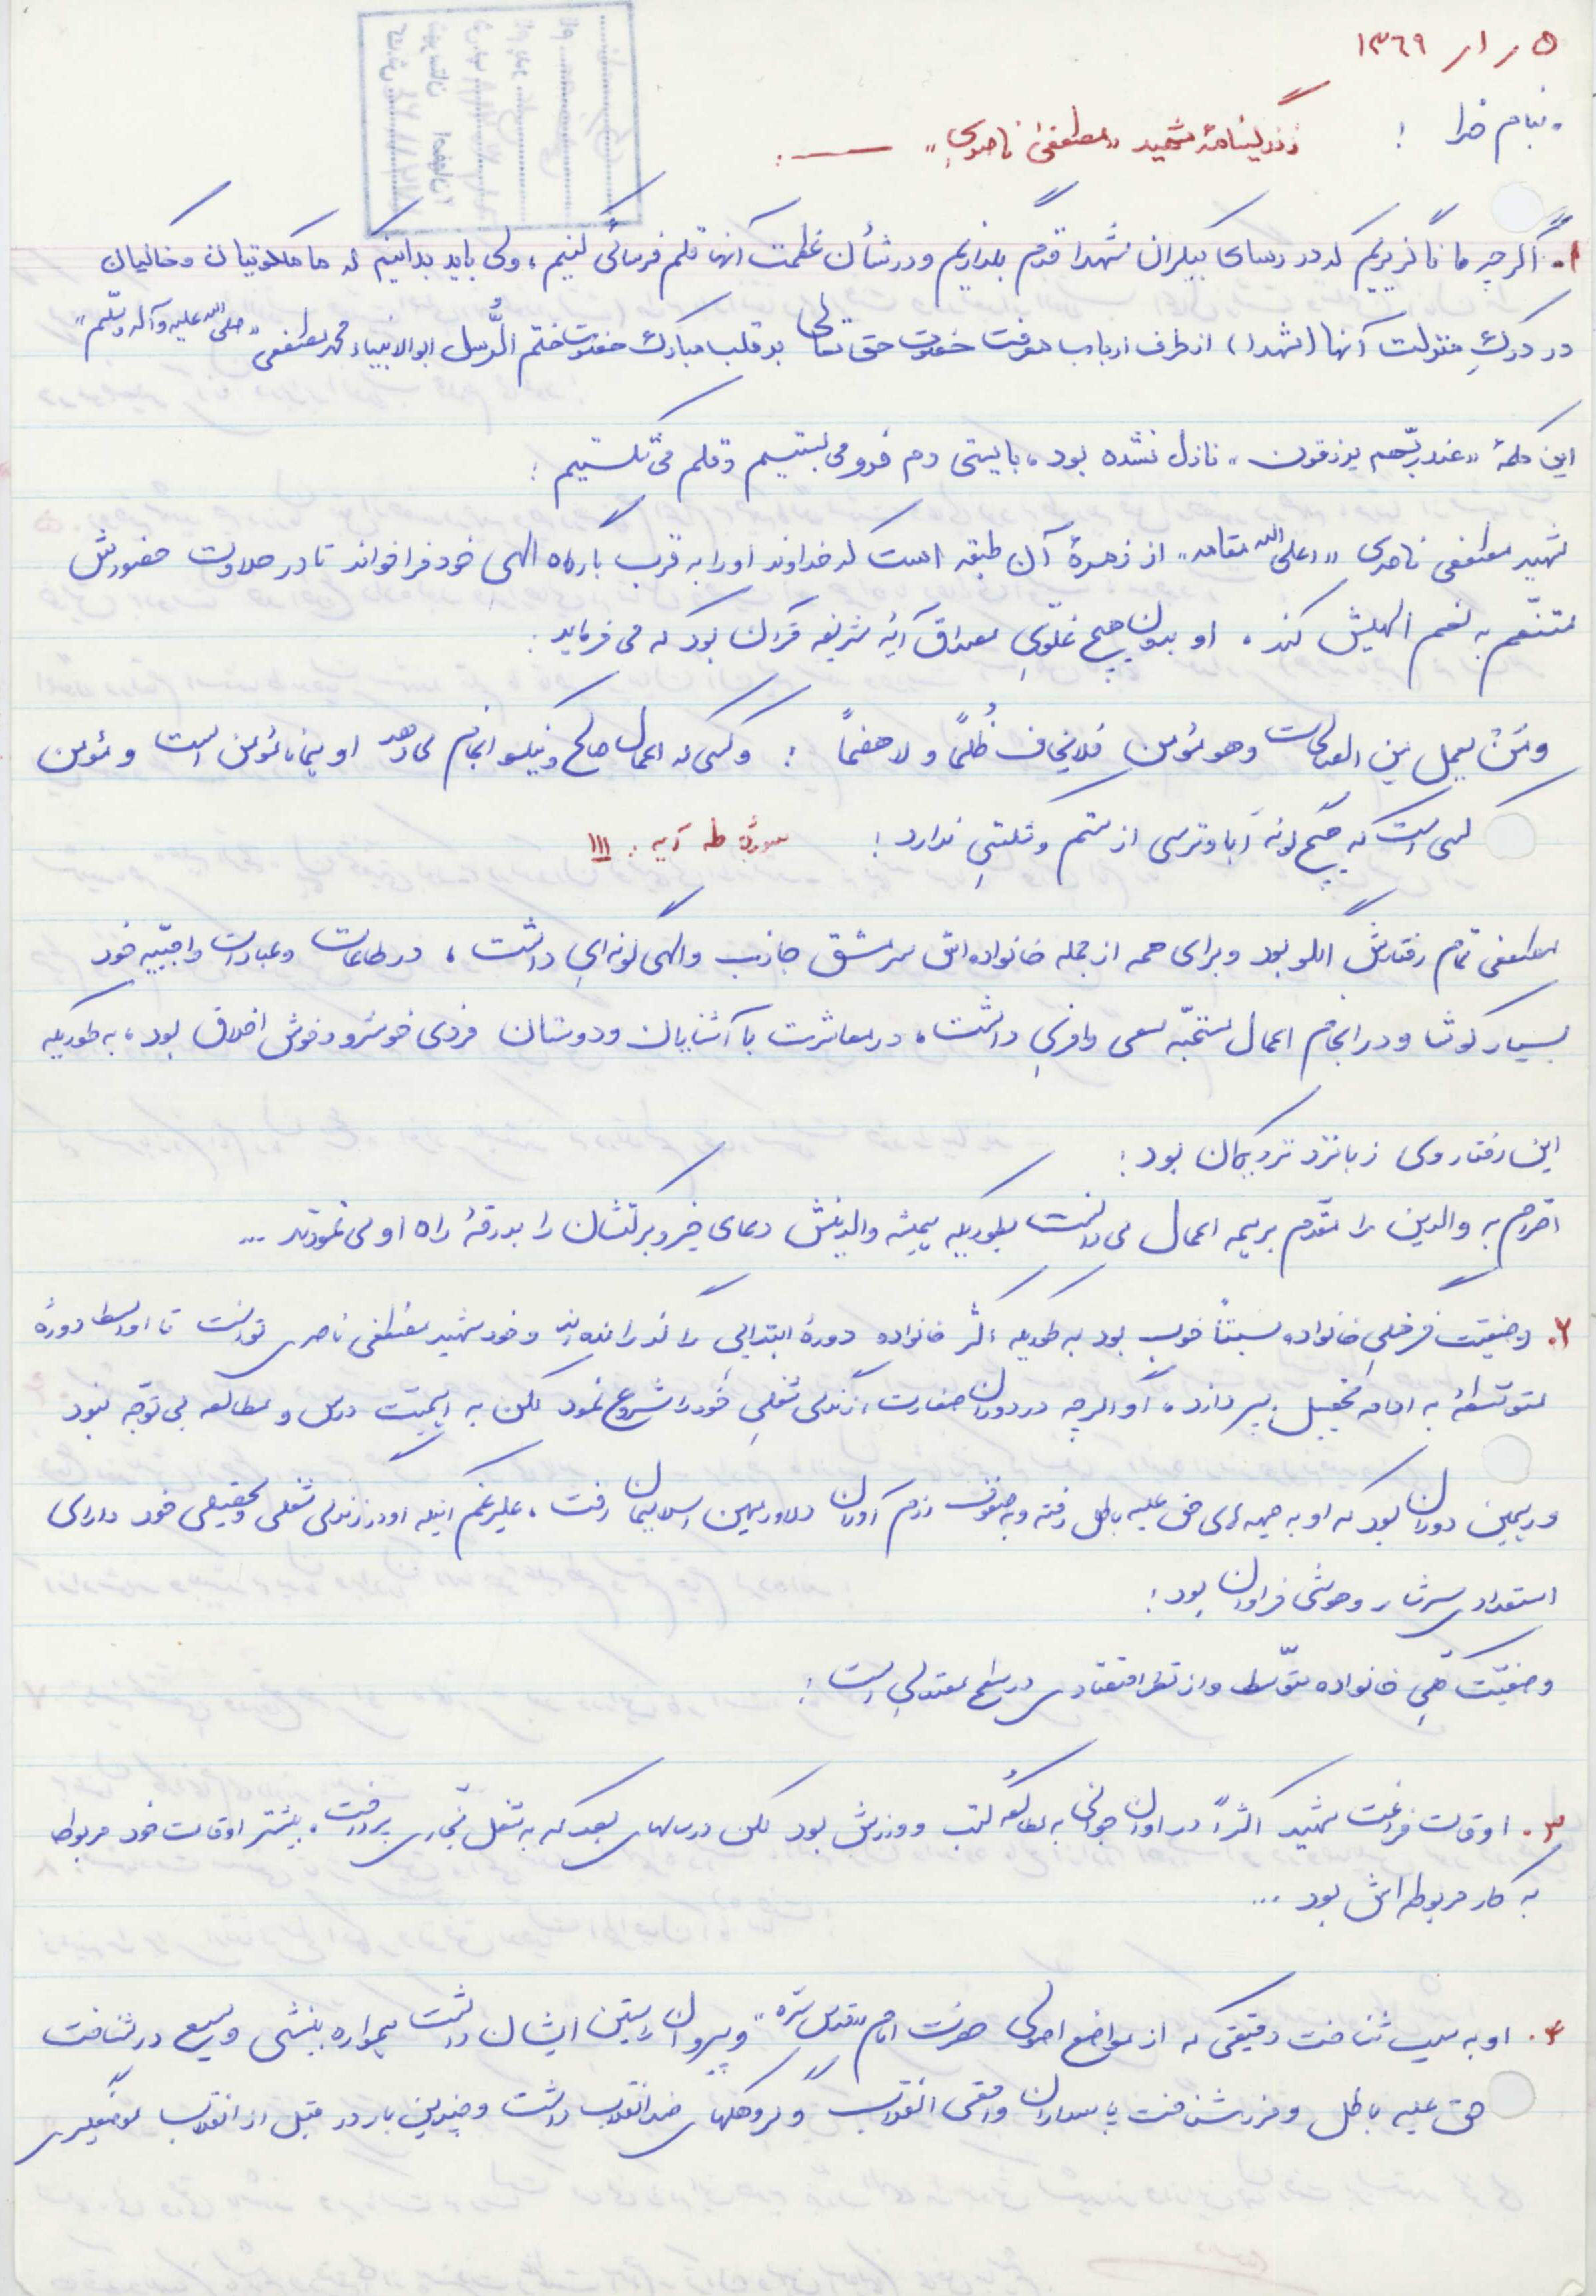 ۵ ر ۱ر ۱۳۶۹
بنام خدا !
زندگینامهٔ شهید «مصطفیٰ ناصری» ـــــ :
۱. اگرچه ما ناگزیریم که در رسای بیکران شهدا قدم بگذاریم و در شأن عظمت آنها قلم فرسائی کنیم، ولی باید بدانیم که ما ملکوتیان و خاکیان
در درکِ منزلت آنها (شهدا) از طرف ارباب معرفت حضرت حق تعالی بر قلب مبارک حضرت ختم الرُّسل ابوالانبیاء محمد مصطفی «صلی الله علیه وآله وسلّم»
این کلمهٔ «عند ربّهم یرزقون» نازل نشده بود، بایستی دم فرو می بستیم و قلم می شکستیم :
شهید مصطفی ناصری «اعلی الله مقامه» از زمرهٔ آن طبقه است که خداوند او را به قرب بارگاه الهی خود فرا خواند تا در حلاوت حضورش
متنّعم به نعم الهیش کند. او بدون هیچ غلّوی مصداق آیهٔ شریفه قرآن بود که می فرماید :
ومَنْ یعمل مِن الصالحات وهو مؤمن فلا یخاف ظُلماً ولا هضماً : و کسی که اعمال صالح و نیکو انجام می دهد او همانا مؤمن است و مؤمن
کسی است که هیچ گونه اَبا و ترسی از ستم و ندارد ! سورهٔ طه آیه : ۱۱۱
مصطفی تمام رفتارش الگو بود و برای همه از جمله خانواده اش سرمشق جاذب و الهی گونه ای داشت، در طاعات و عبادات واجبّیه خود
بسیار کوشا و در انجام اعمال مستحبّه سعی وافری داشت، در معاشرت با آشنایان و دوستان فردی خوشرو و خوش اخلاق بود، به طوریکه
این رفتار وی زبانزد نزدیکان بود :
احترام به والدین را مقدم بر همه اعمال می دانست بطوریکه همیشه والدینش دعای خیر و برکتشان را بدرقهٔ راه او می نمودند ...
۲. وضعیّت فرهنگی خانواده نسبتاً خوب بود به طوریکه اکثر خانواده دورهٔ ابتدایی را گذرانده اند و خود شهید مصطفی ناصری توانست تا اواسط دورهٔ
متوسّطهٔ به ادامه تحصیل بپردازد. او اگرچه در دوران صغارت، زندگی شغلی خود را شروع نمود لکن به اهمیّت درس و مطالعه بی توجّه نبود
و در همین دوران بود که او به جبهه های حق علیه باطل رفته و به صفوف رزم آوران دلاور میهن اسلامیمان رفت، علیرغم اینکه او در زندگی شغلی و تحقیقی خود دارای
استعدادی سرشار و هوشی فراوان بود :
وضعیّت خانواده متوّسط و از نظر اقتصادی در سطح معتدلی است :
۳. اوقات فراغت شهید اکثراً در اوان جوانی به مطالعهٔ کتب و ورزش بود لکن در سالهای بعد که به شغل نجّاری پرداخت، بیشتر اوقات خود مربوط
به کار مربوطه اش بود ...
۴. او به سبب شناخت دقیقی که از مواضع اصولی حضرت امام «قدس سرّه» و پیروان راستین ایشان داشت همواره بینشی وسیع در شناخت
حق علیه باطل و نیز در شناخت پاسداران واقعی انقلاب و گروهکهای ضد انقلاب داشت و چندین بار در قبل از انقلاب موضعگیری